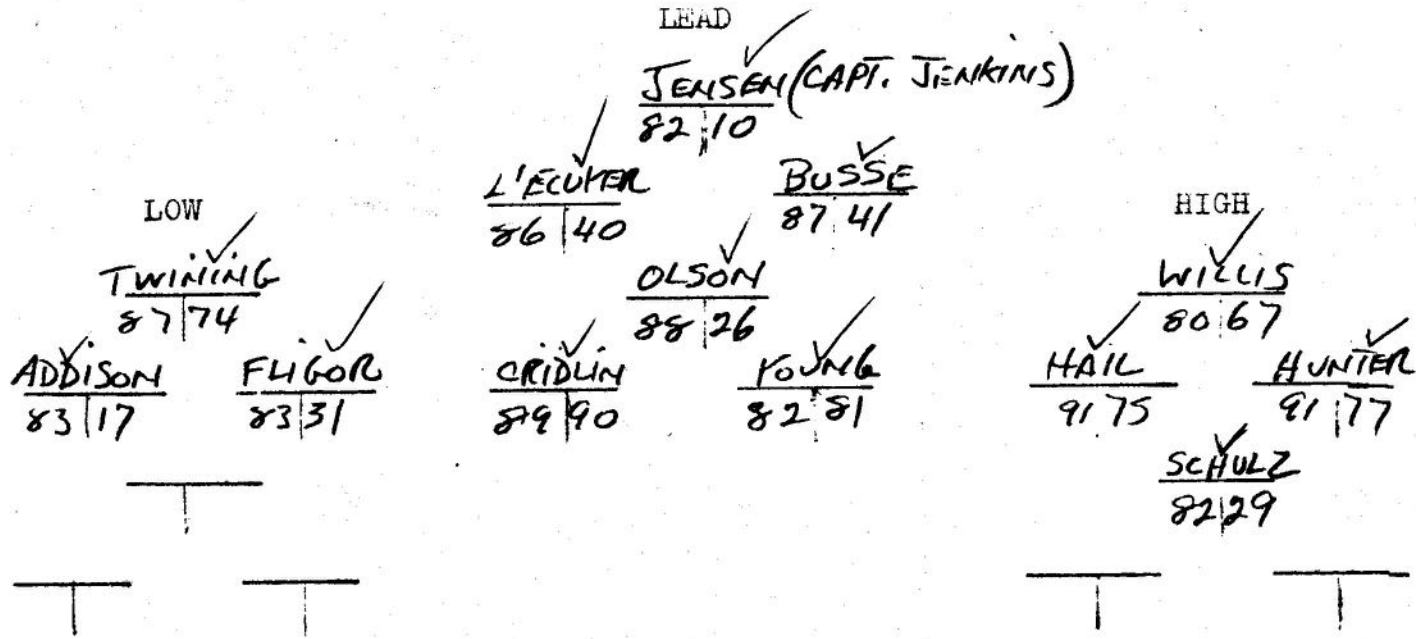 LEAD
JENSEN (CAPT. JENKINS)
82 10
L'ECUYER
86 40
BUSSE
87 41
OLSON
88 26
CRIDLIN
89 90
YOUNG
82 81
LOW
TWINING
87 74
ADDISON
83 17
FLIGOR
83 31
HIGH
WILLIS
80 67
HAIL
91 75
HUNTER
91 77
SCHULZ
82 29